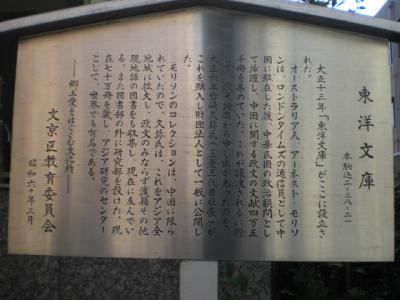 東洋文庫
本駒込二-二八-二一
大正十三年「東洋文庫」がここに設立さ
れた。
オーストラリア人、アーネスト・モリソ
ンは、ロンドンタイムズの通信員として中
国に駐在した後、中華民国の政治顧問とし
て活躍し、中国に関する欧文の文献四万五
千冊を集めていた。これが譲渡されるに際
して、欧米諸国から申し出があったのを、
大正六年岩崎久弥氏(三菱三代目社長)が
これを購入し財団法人として一般に公開し
た。
モリソンのコレクションは、中国に限ら
れていたので、久弥氏は、これをアジア全
地域に拡大し、欧文のみならず漢籍その他
現地語の図書をも収集し、現在に及んでい
る。また図書部の外に研究部を設けた。現
在七十万冊を蔵し、アジア研究のセンター
として、世界でも有名である。
―郷土愛をはぐくむ文化財―
文京区教育委員会
昭和六〇年三月